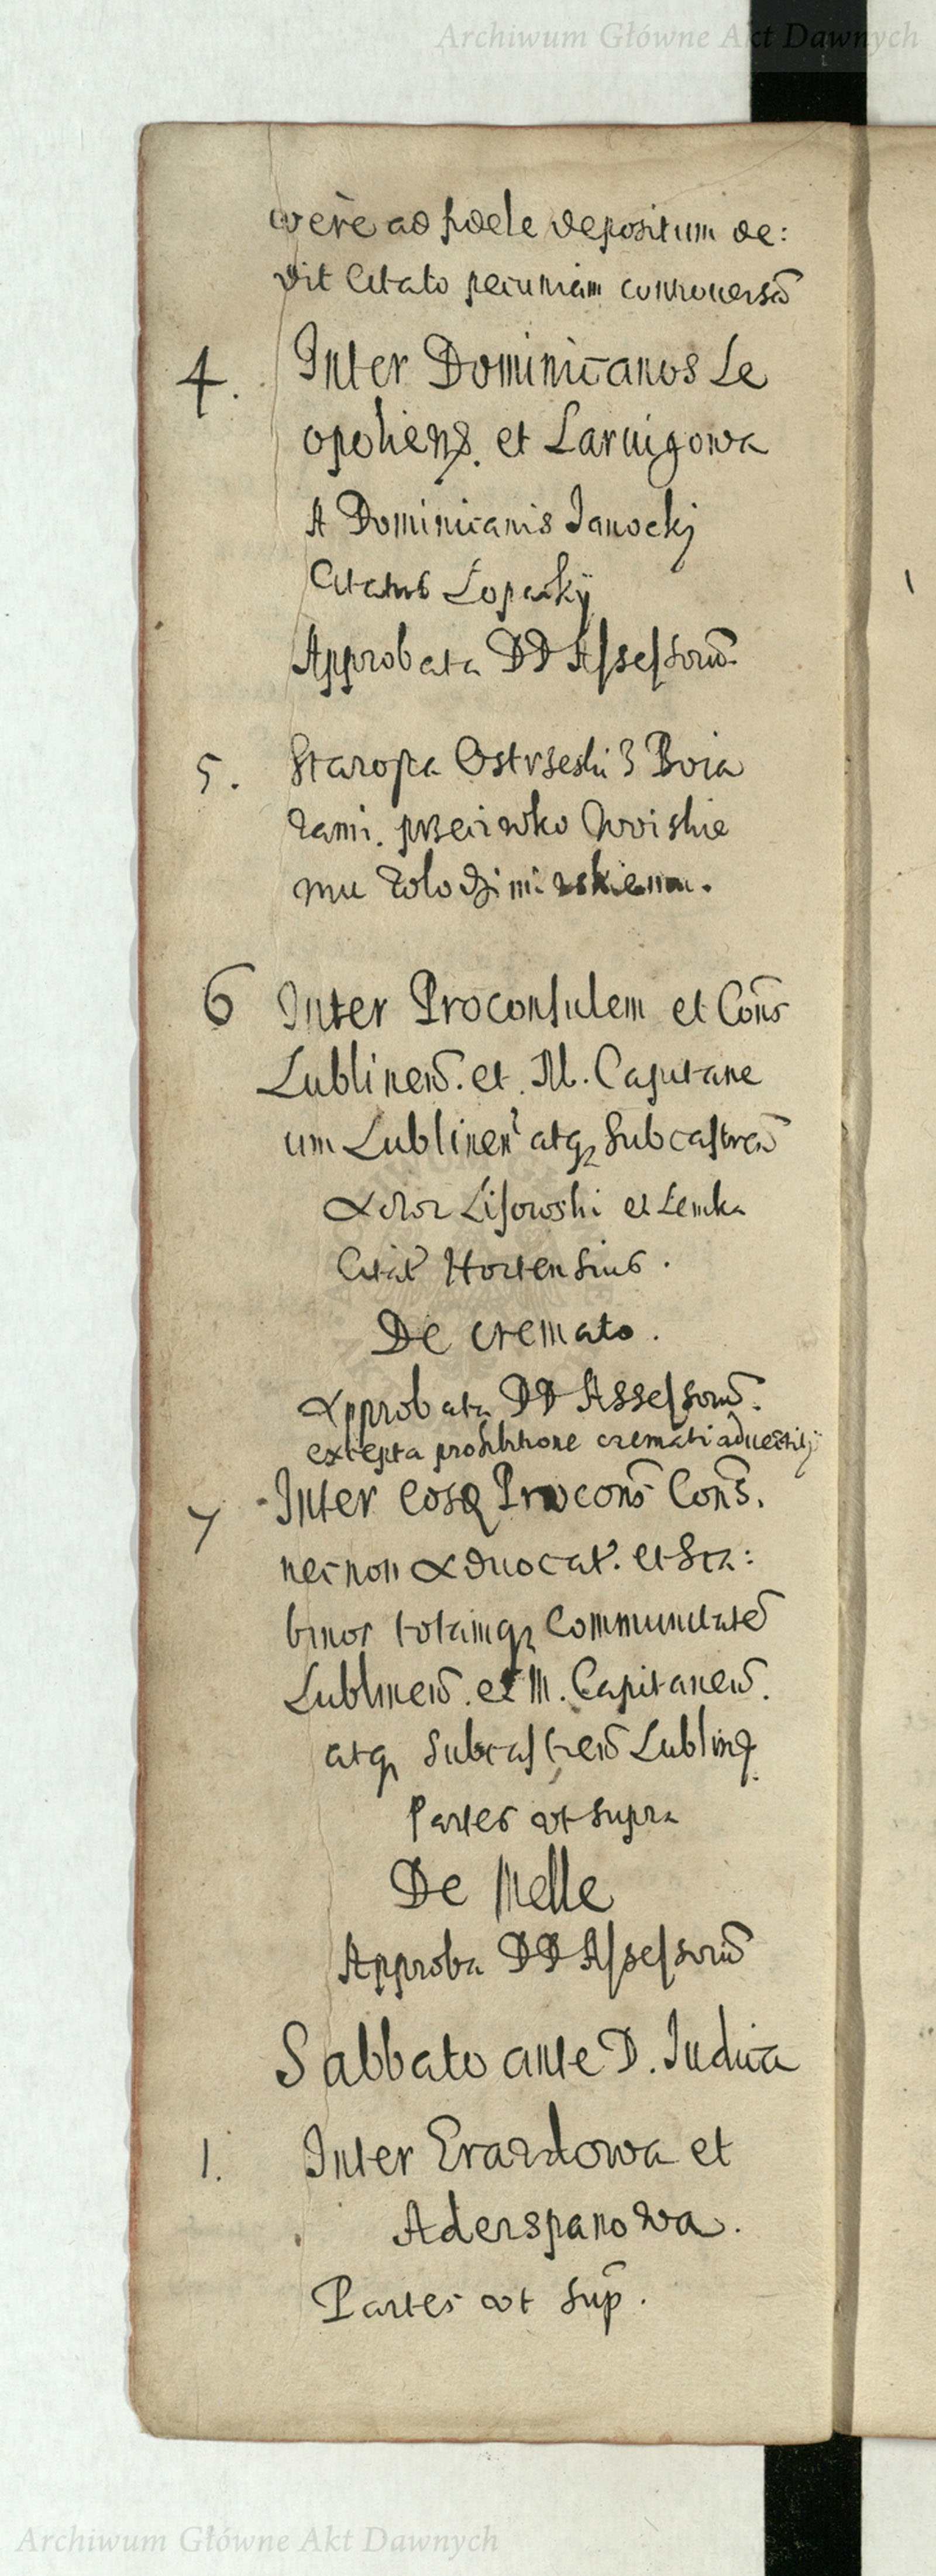 Archiwum Główne Akt Dawnych
vere ad fidele depositum de:
dit Citato pecuniam controuersā
4. Inter Dominicanos Le
opoliens. et Larnigowa
A Dominicanis Janockj
Citatus Lopackÿ
Approbata DD Assessorū.
5. Starosta Ostrzeski z Boia
rami. przeciwko Woiskie
mu Wolodzimirskiemu.
6 Inter Proconsulem et Cons̄
Lublinen̄. et. M. Capitane
um Lublinen̄ atq; Subcastren̄
Actor Lisowski et Lemka
Citat̄ Hortensius.
De cremato.
Approbata DD Assessorū.
excepta prohibitione cremati aduectitij
7 Inter eosq; Procons̄ Cons̄.
necnon Aduocat̄. et Sca:
binos totamq; Communitatē
Lublinen̄. et M. Capitaneū.
atq; Subcastren̄ Lublinen̄.
Partes vt supra
De Melle
Approba DD Assessorū
Sabbato ante D. Iudica
1. Inter Erazdowa et
Aderspanowa.
Partes vt sup̄.
Archiwum Główne Akt Dawnych